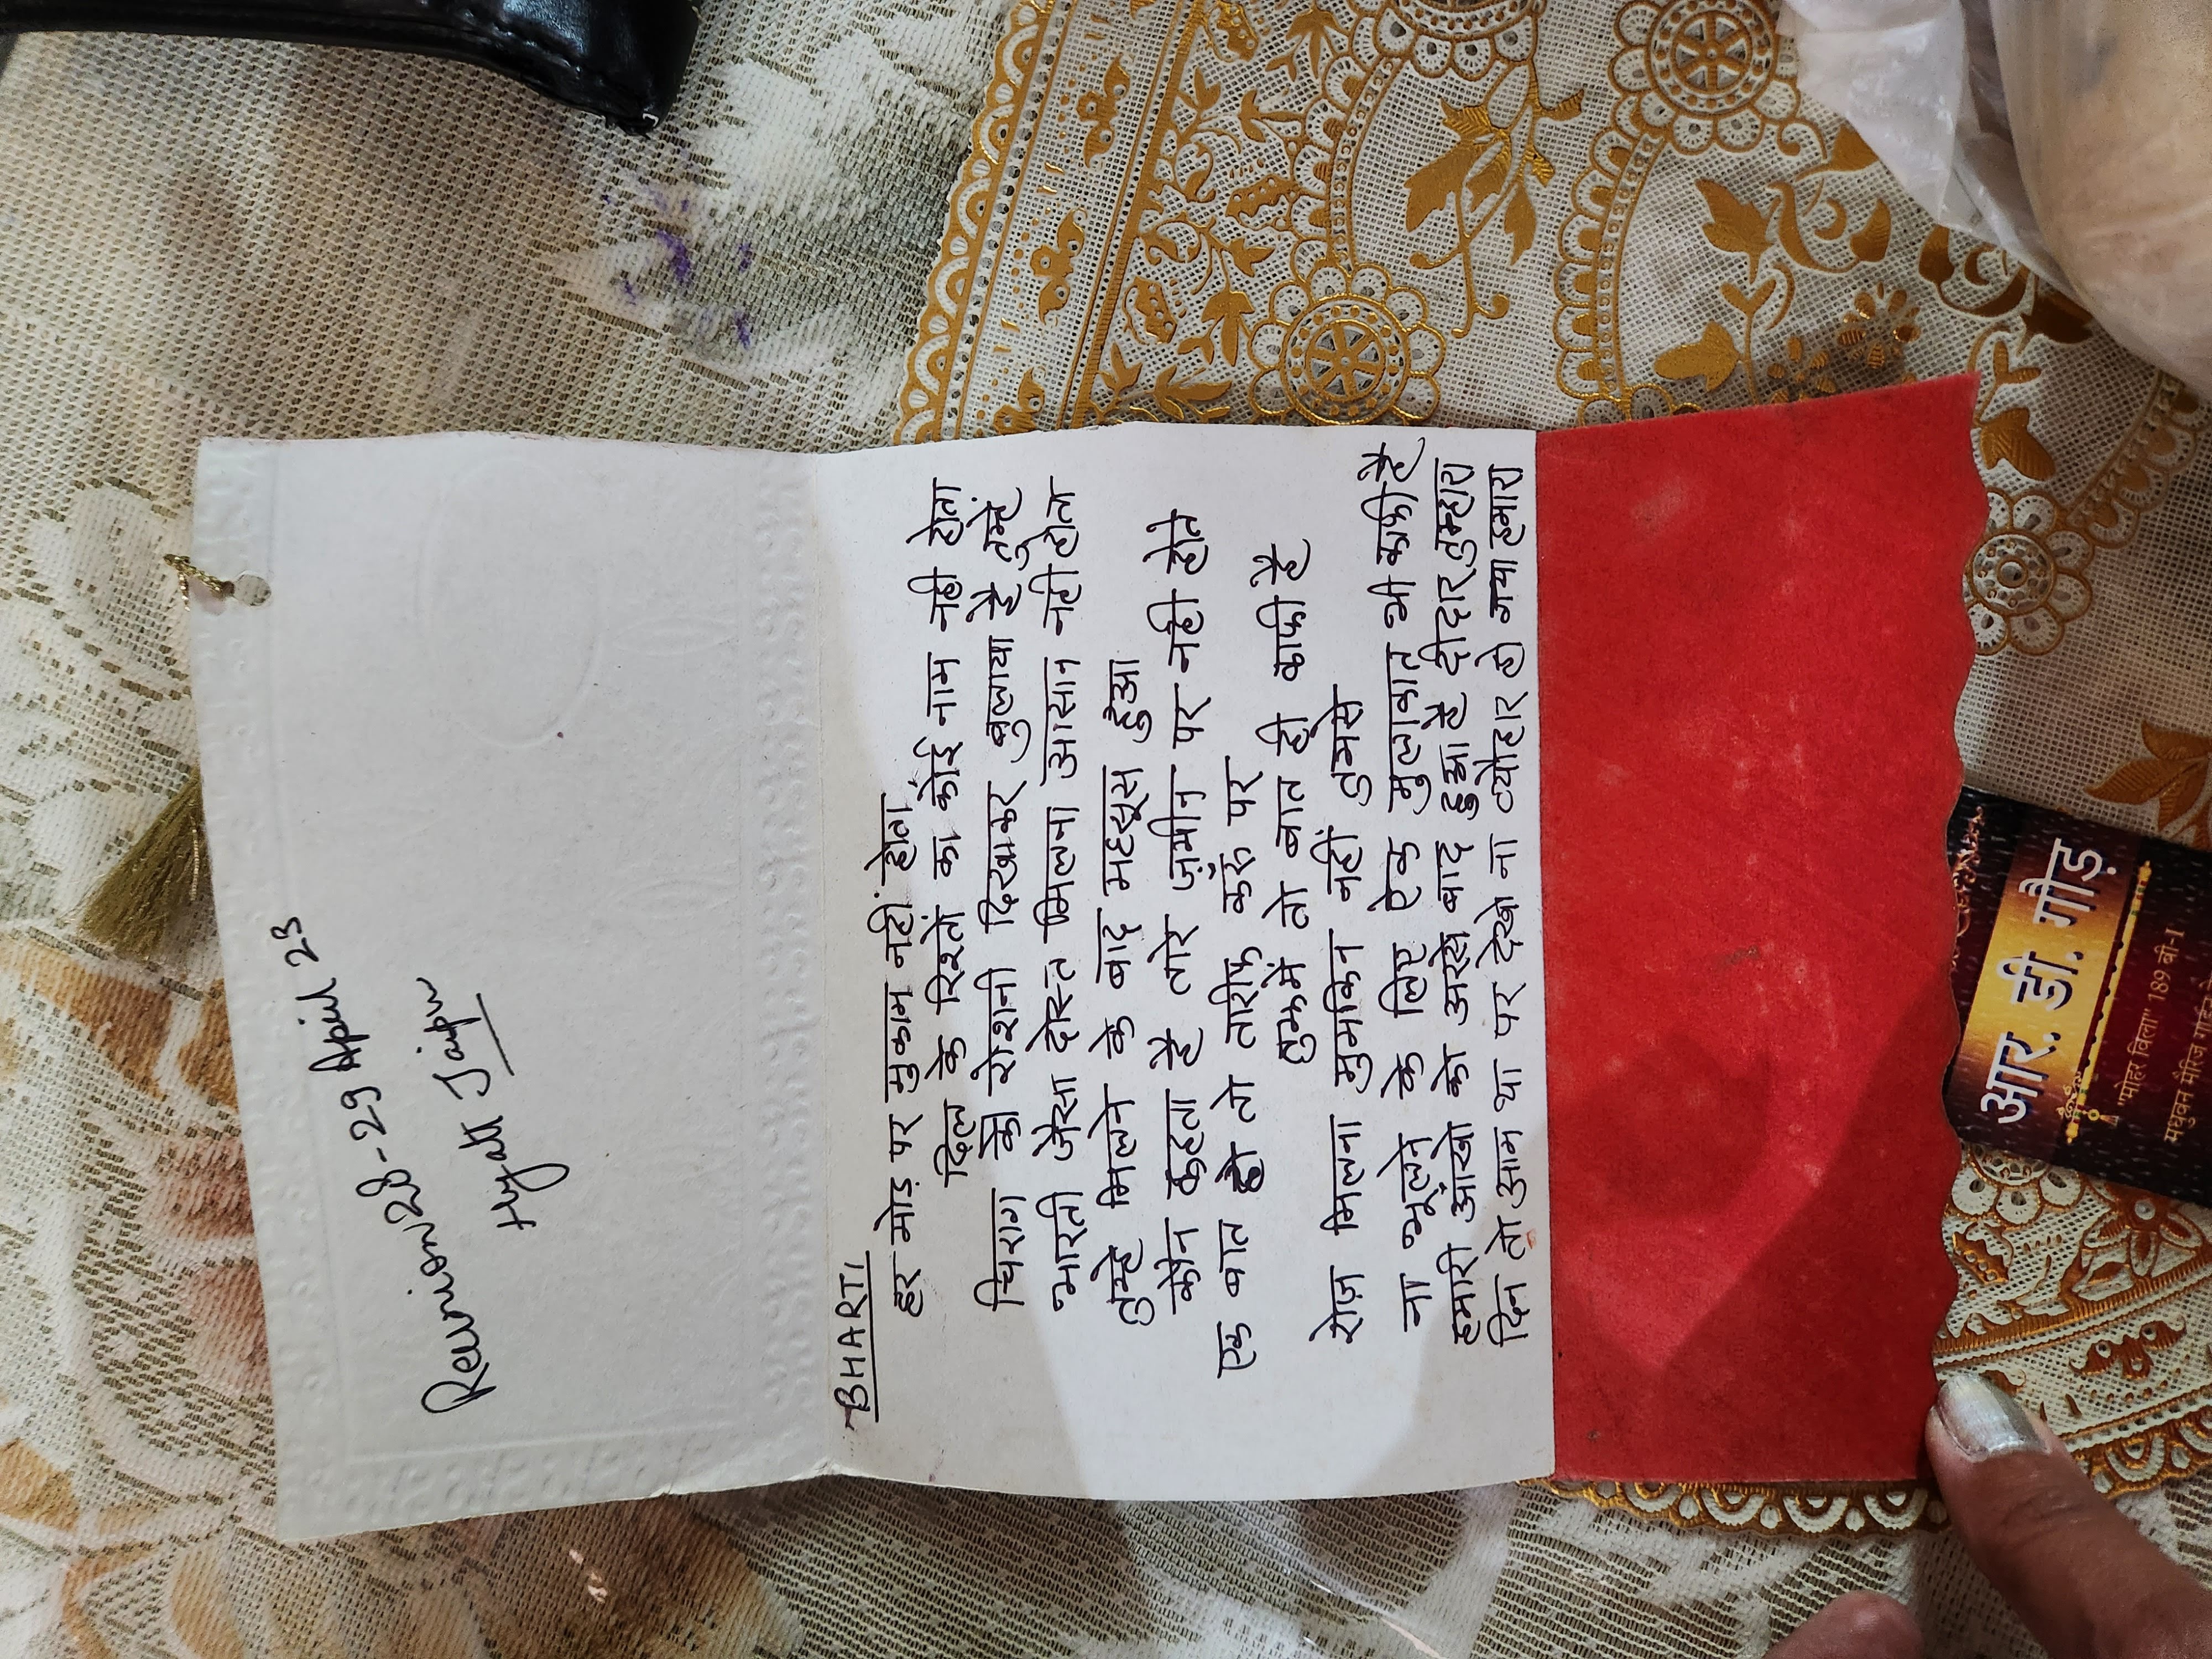 Reunion 28-29 April 23
Hyatt Jaipur
BHARTI
हर मोड़ पर मुकाम नहीं होता
दिल के रिश्तों का कोई नाम नही होता
चिराग की रोशनी दिखाकर बुलाया है तुम्हें
भारती जैसा दोस्त मिलना आसान नही होता
तुम्हे मिलने के बाद महसूस हुआ
कौन कहता है तारे ज़मीन पर नही होते
एक बात हो तो तारीफ करु पर
तुममें तो बात ही काफी है
रोज़ मिलना मुमकिन नहीं तुमसे
ना भूलने के लिए ऐक मुलाकात भी काफी है
हमारी आंखो को अरसे बाद हुआ है दीदार तुम्हारा
दिन तो आम था पर देख ना त्योहार हो गया हमारा
आर. डी. गौड़
"मोहर विला" 189 बी-I